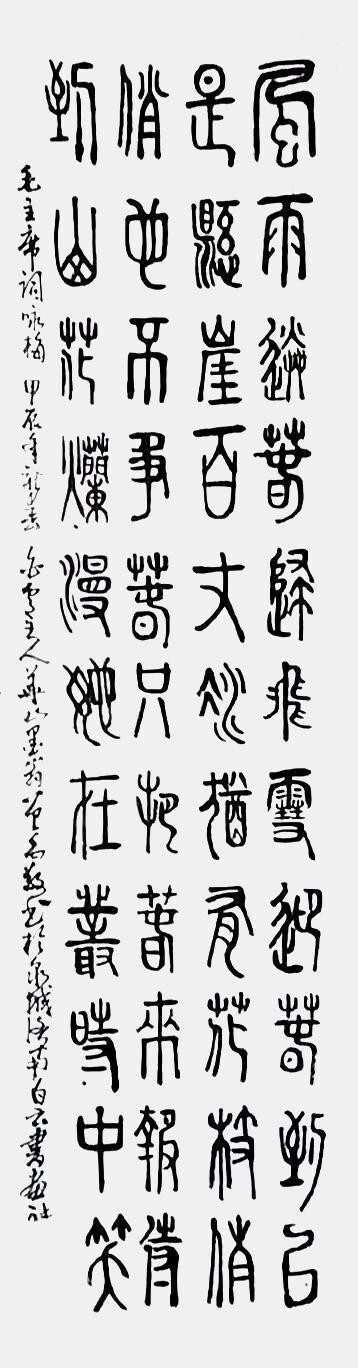 風雨送春歸飛雪迎春到已
是懸崖百丈冰猶有花枝俏
俏也不爭春只把春來報待
到山花爛漫她在叢時中笑
毛主席詞咏梅 甲辰年 春 主人華山墨翁 書於泉城濟南白云書畫社